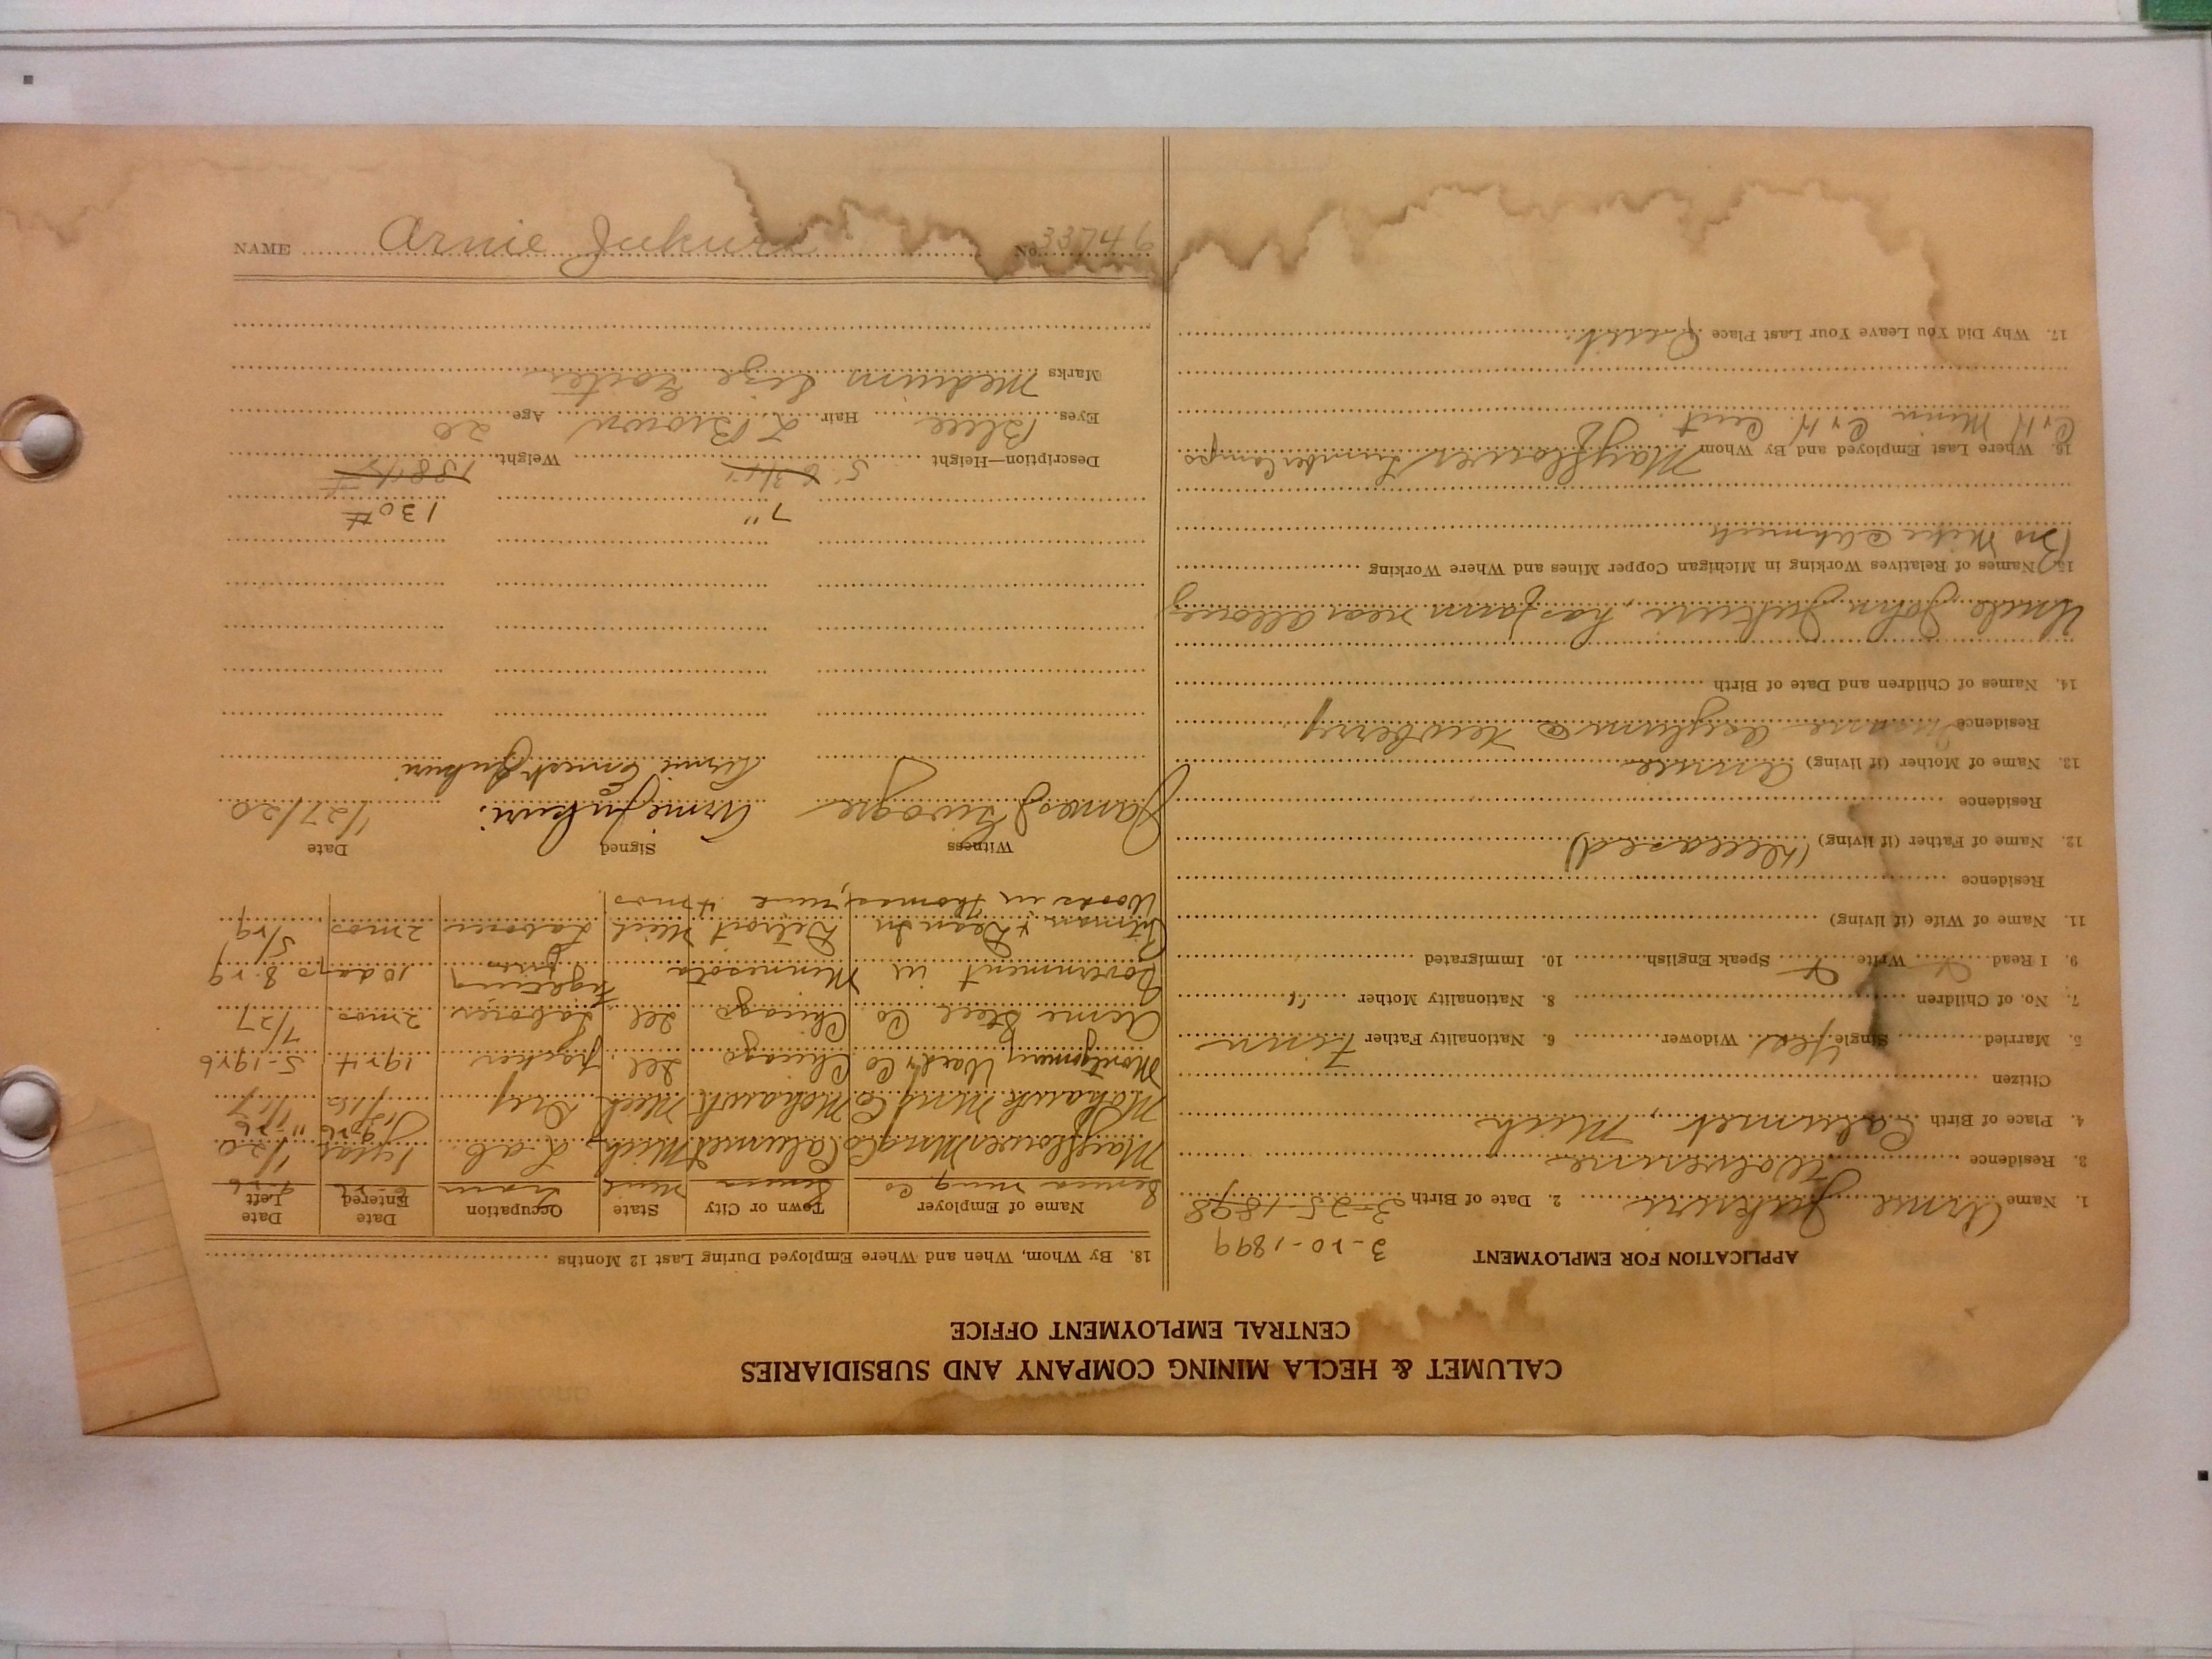 CALUMET & HECLA MINING COMPANY AND SUBSIDIARIES
CENTRAL EMPLOYMENT OFFICE
APPLICATION FOR EMPLOYMENT
3-20-1899
1. Name Arnie Jukuri 2. Date of Birth 3-25-1898
3. Residence Wolverine
4. Place of Birth Calumet, Mich
Citizen
5. Married Single Yes Widower 6. Nationality Father Finn
7. No. of Children 8. Nationality Mother "
9. I Read Write Speak English 10. Immigrated
11. Name of Wife (if living)
Residence
12. Name of Father (if living) (Deceased)
Residence
13. Name of Mother (if living) Annie
Residence Insane Asylum @ Newberry
14. Names of Children and Date of Birth
Uncle John Jukuri, has farm near Allouez
15. Names of Relatives Working in Michigan Copper Mines and Where Working
Bro Mike @ Ahmeek
16. Where Last Employed and By Whom Mayflower Lumber Camps
C & H Minn C & H. Cent.
17. Why Did You Leave Your Last Place Quit.
18. By Whom, When and Where Employed During Last 12 Months
Name of Employer Town or City State Occupation Date Entered Date Left
Seneca Mng Co Seneca Mich tram
Mayflower Mng Co Calumet Mich Lab. 1 year 1/20
Mohawk Mng Co Mohawk Mich Dry
Montgomery Ward & Co Chicago Ill packer 1924 5-1926
Acme Steel Co Chicago Ill Laborer 2 mos 7/27
Government in Minnesota Fighting fires 10 days 8-29
Putman & Dean In Detroit Mich Laborer 2 mos 5/29
Works in Thomas, mine 4 mos
Witness Signed Date
James Arnie Jukuri. 1/27/20
Arnie Ernest Jukuri
7" 130#
Description—Height 5' 6 3/4" Weight 138 1/2 #
Eyes Blue Hair L. Brown Age 20
Marks Medium Size Goiter
NAME Arnie Jukuri No. 33746